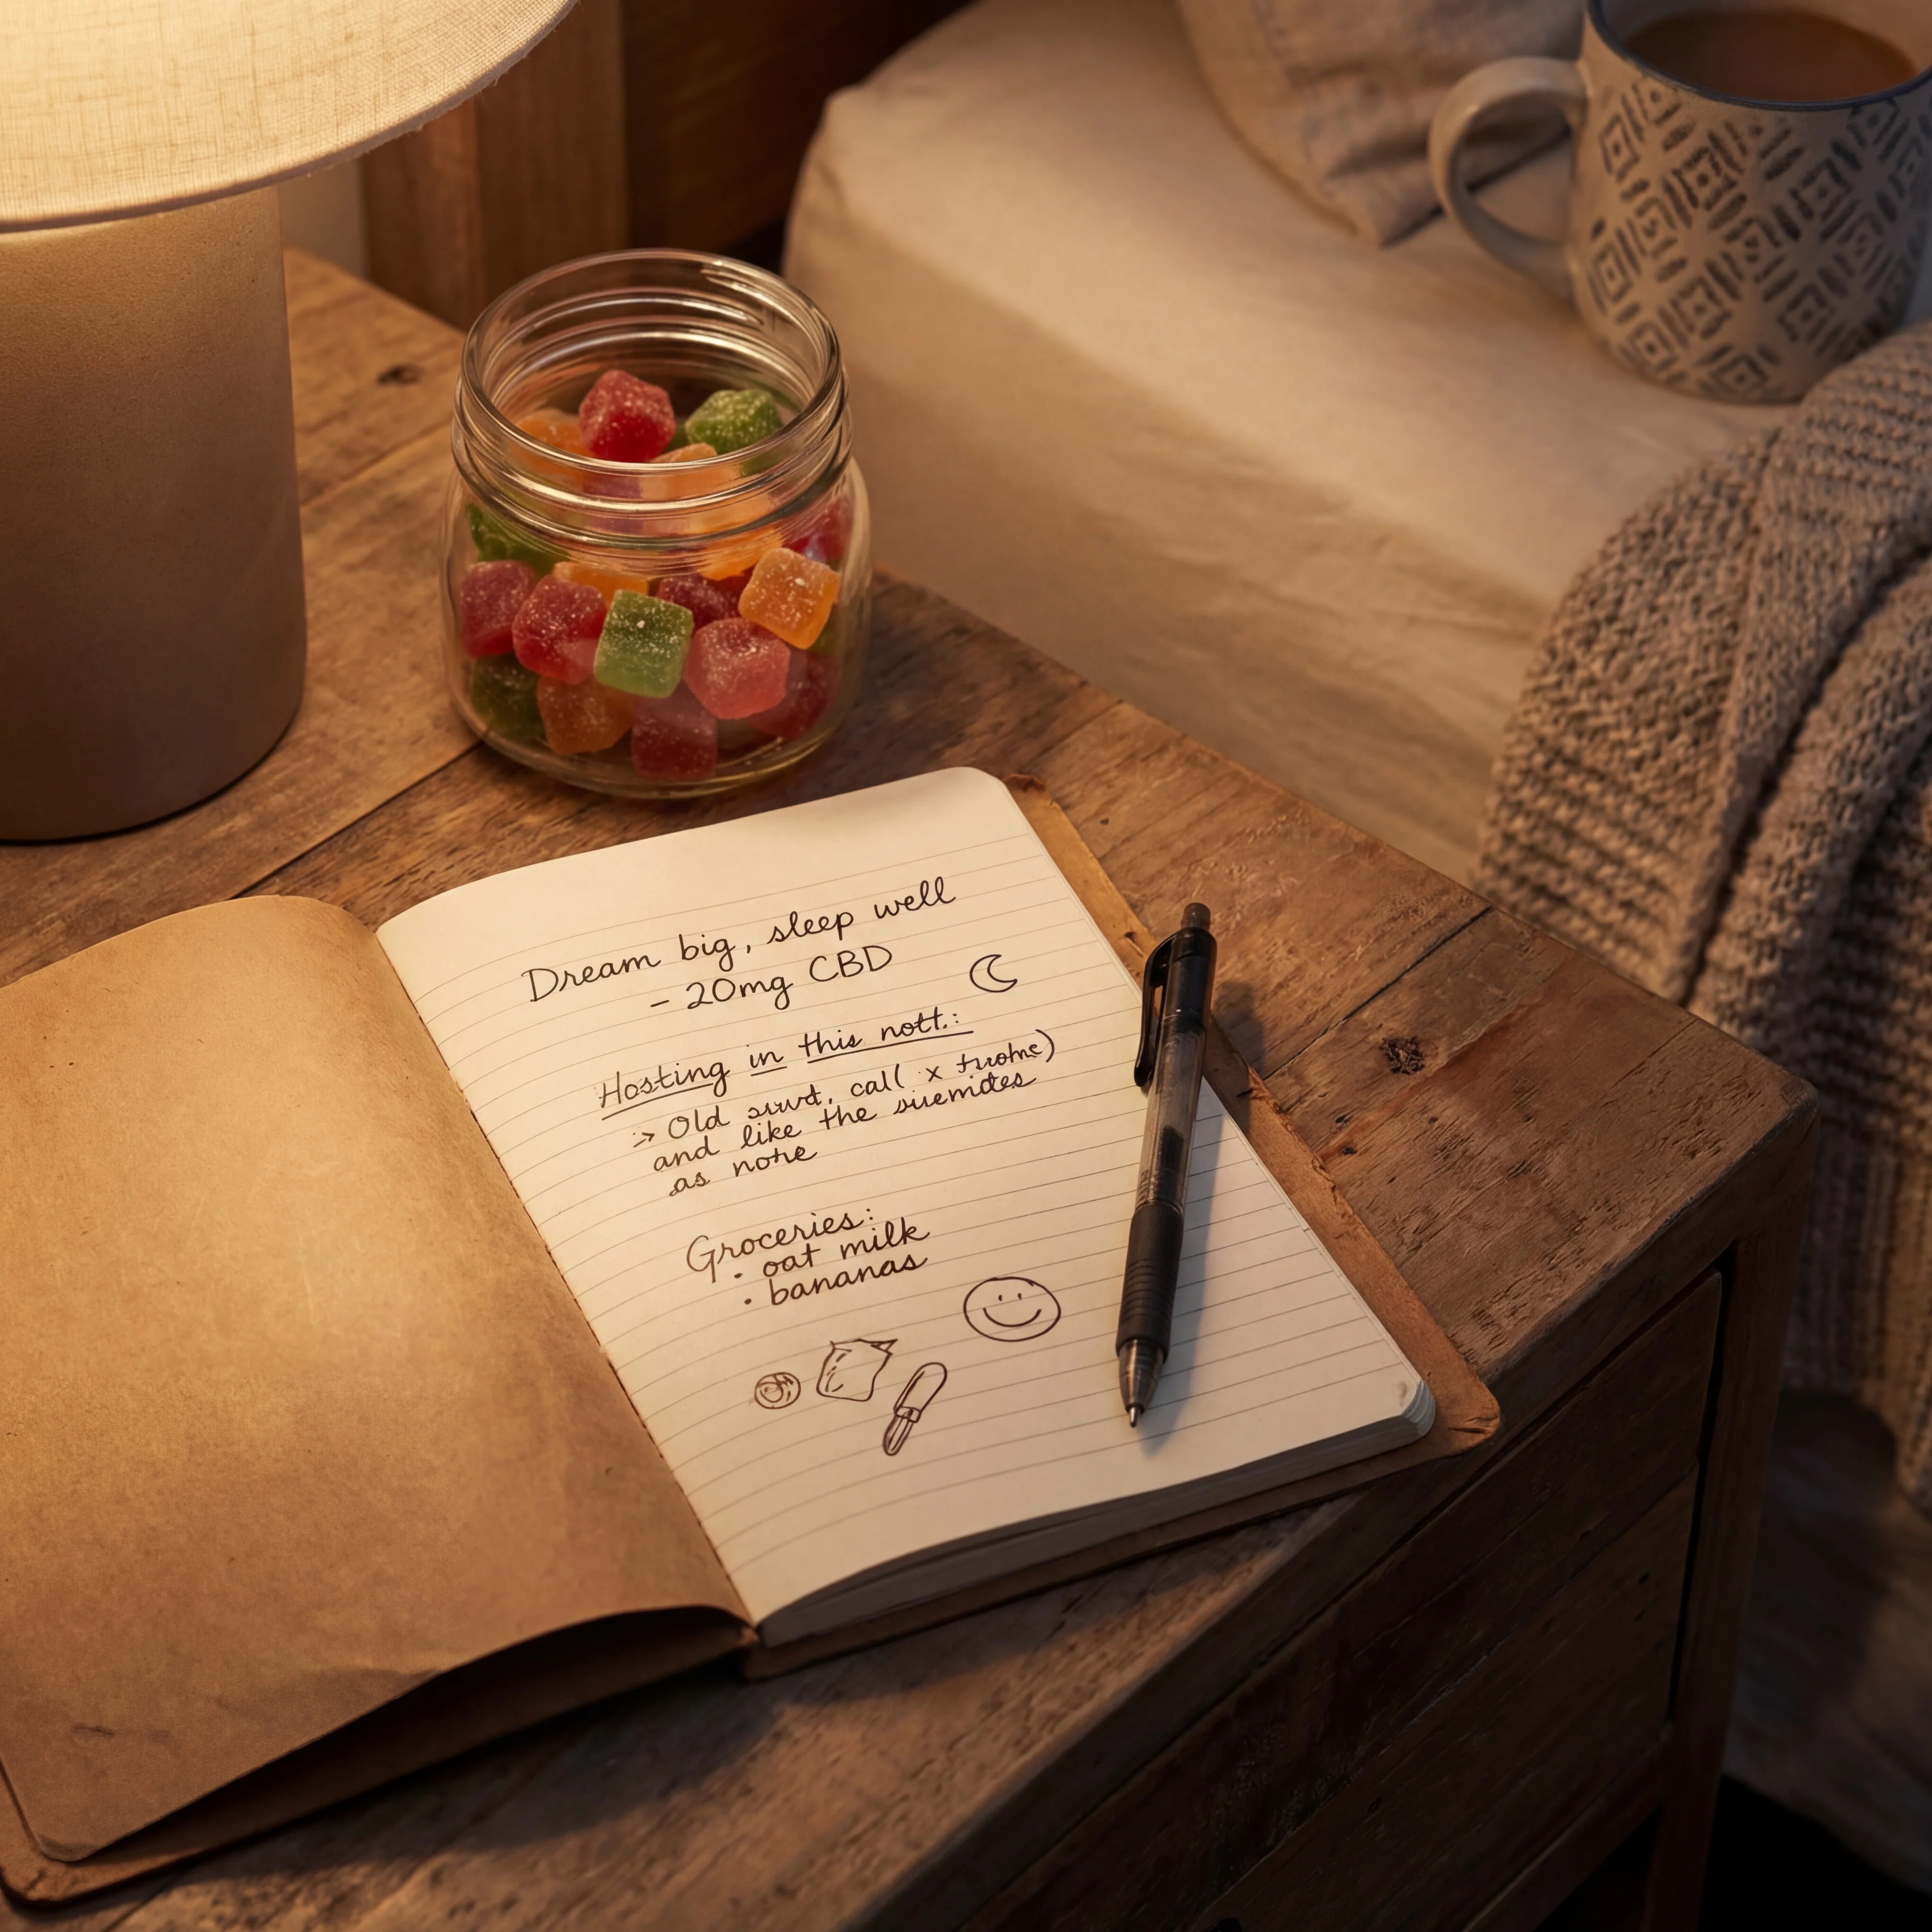 Dream big, sleep well
- 20mg CBD
Hosting in this nott.:
Old call x
and like the
as
Groceries:
• oat milk
• bananas